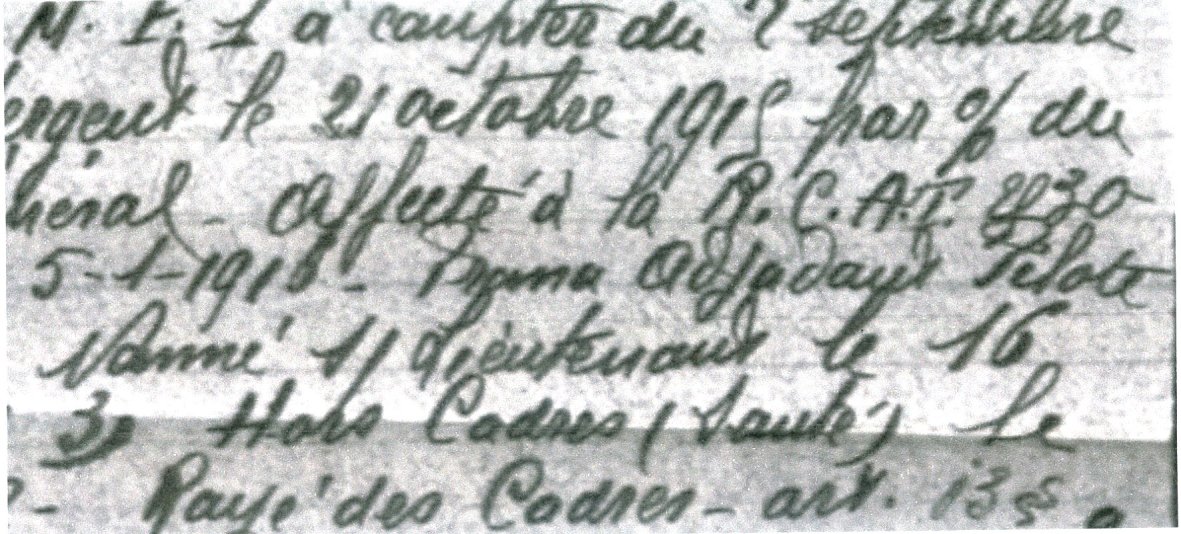 M. F. 1 à compter du 2 septembre
ergent le 21 octobre 1915 par % du
néral - Affecté à la R.C.A.T. 230
5-1-1918 - Promu Adjudant Pilote
Nommé S/ Lieutenant le 16
Hors Cadres (Santé) le
- Rayé des Cadres - art.